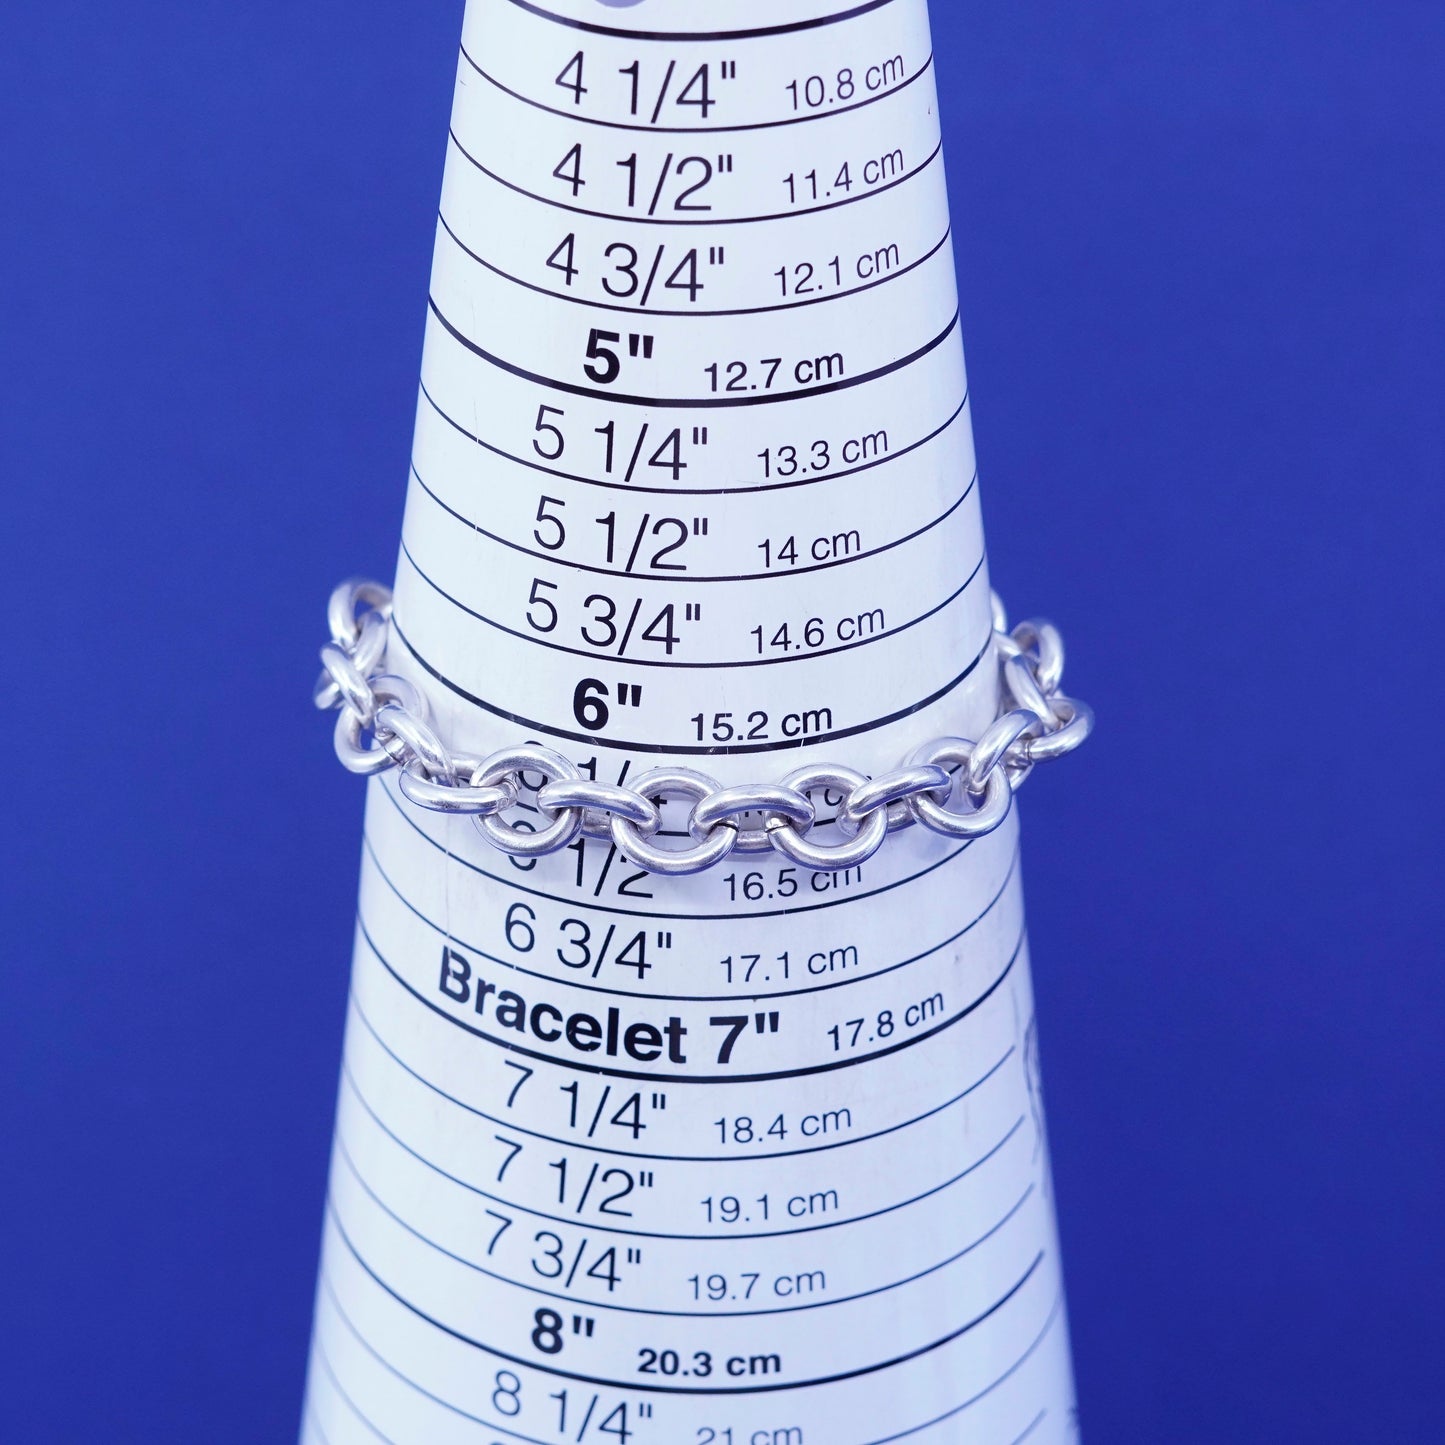 4 1/4" 10.8 cm
4 1/2" 11.4 cm
4 3/4" 12.1 cm
5" 12.7 cm
5 1/4" 13.3 cm
5 1/2" 14 cm
5 3/4" 14.6 cm
6" 15.2 cm
1/4
1/2 16.5 cm
6 3/4" 17.1 cm
Bracelet 7" 17.8 cm
7 1/4" 18.4 cm
7 1/2" 19.1 cm
7 3/4" 19.7 cm
8" 20.3 cm
8 1/4" 21 cm